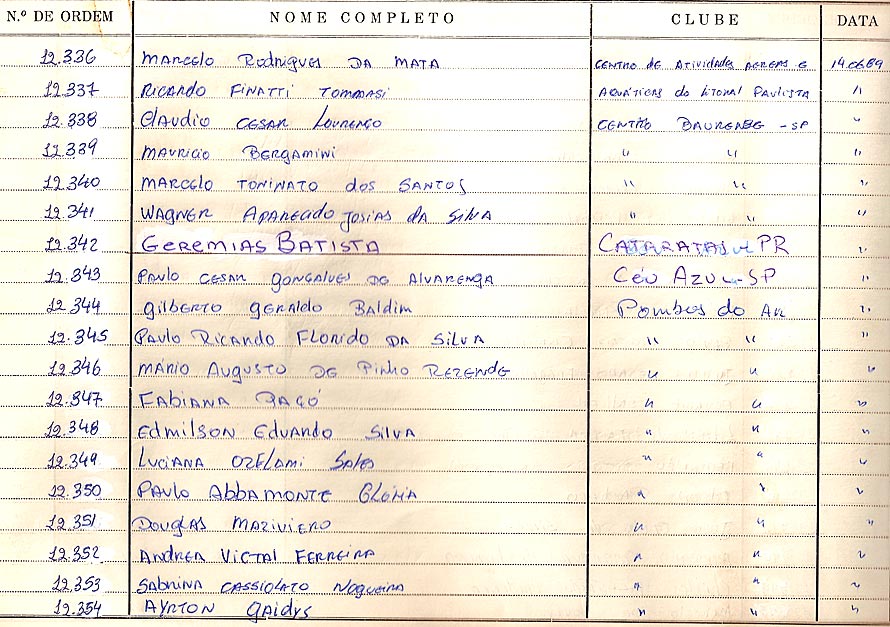 N.º DE ORDEM NOME COMPLETO CLUBE DATA
12.336 Marcelo Rodrigues da Mata Centro de Atividades Aereas e 14.06.89
12.337 Ricardo Finatti Tommasi Aquáticas do Litoral Paulista "
12.338 Claudio Cesar Lourenço Centro Baurense - SP "
12.339 Mauricio Bergamini " " "
12.340 Marcelo Toninato dos Santos " " "
12.341 Wagner Aparecido Josias da Silva " " "
12.342 Geremias Batista Cataratas PR "
12.343 Paulo Cesar Gonçalves de Alvarenga Céu Azul - SP "
12.344 Gilberto Geraldo Baldim Pombos do Ar "
12.345 Paulo Ricardo Florido da Silva " " "
12.346 Mário Augusto de Pinho Rezende " " "
12.347 Fabiana " " "
12.348 Edmilson Eduardo Silva " " "
12.349 Luciana Ozelami Sales " " "
12.350 Paulo Abbamonte Glória " " "
12.351 Douglas Maziviero " " "
12.352 Andrea Victal Ferreira " " "
12.353 Sabrina Cassiolato Nogueira " " "
12.354 Ayrton Gaidys " " "